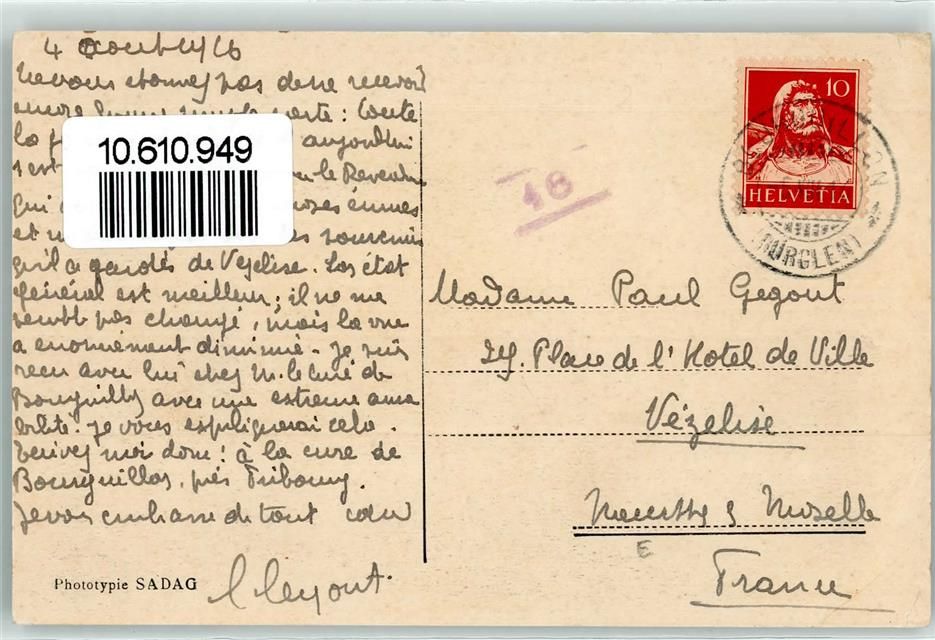 4 août 1926
Ne vous étonnez pas de ne recevoir
encore carte : toute
la aujourd'hui
c'est le Révérend
qui choses émues
et souvenirs
qu'il a gardés de Vézelise. Son état
général est meilleur ; il ne me
semble pas changé, mais la vue
a énormément diminué. Je suis
reçu avec lui chez M. le curé de
Bourguillon avec une extrême ama
bilité. Je vous expliquerai cela.
Ecrivez moi donc : à la cure de
Bourguillon, près Fribourg.
Je vous embrasse de tout cœur
Gegout
Phototypie SADAG
10.610.949
18
10
HELVETIA
(BÜRGLEN)
Madame Paul Gegout
Place de l'Hotel de Ville
Vézelise
Meurthe & Moselle
E
France